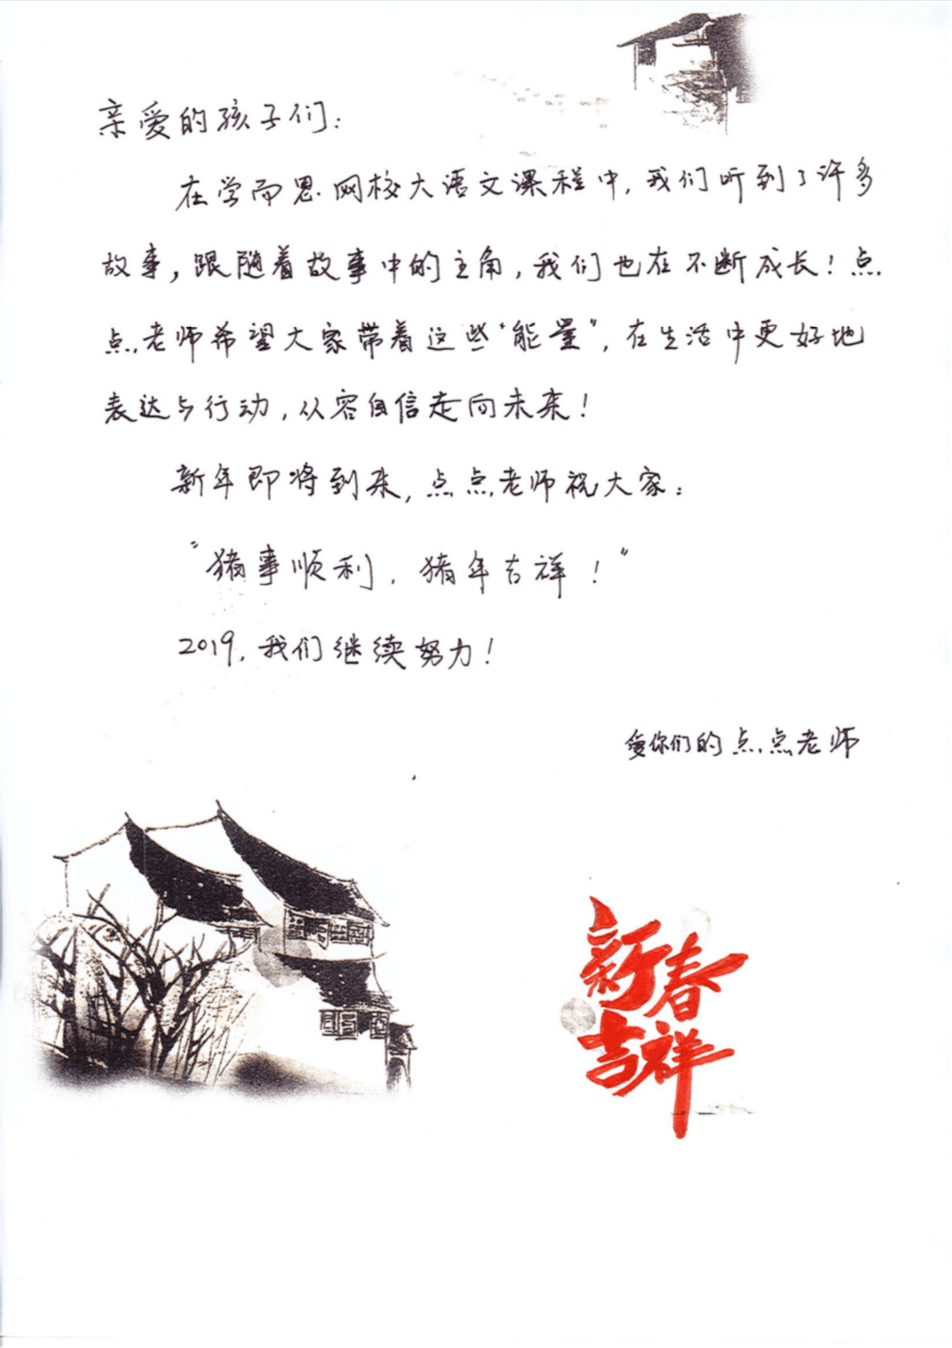 亲爱的孩子们：
在学而思网校大语文课程中，我们听到了许多
故事，跟随着故事中的主角，我们也在不断成长！点
点老师希望大家带着这些“能量”，在生活中更好地
表达与行动，从容自信走向未来！
新年即将到来，点点老师祝大家：
“猪事顺利，猪年吉祥！”
2019，我们继续努力！
爱你们的点点老师
新春
吉祥